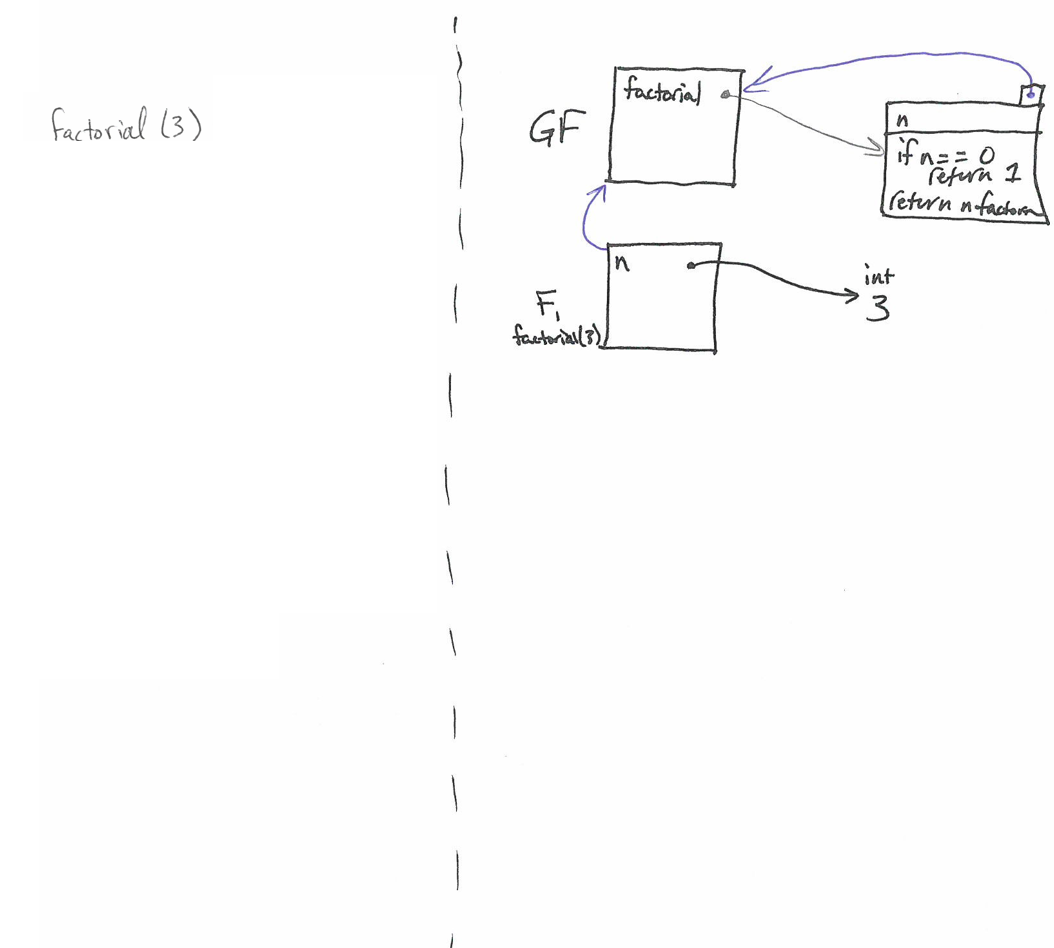 factorial (3)
GF
factorial
n
if n == 0
return 1
return n factoria
n
F1
factorial(3)
int
3